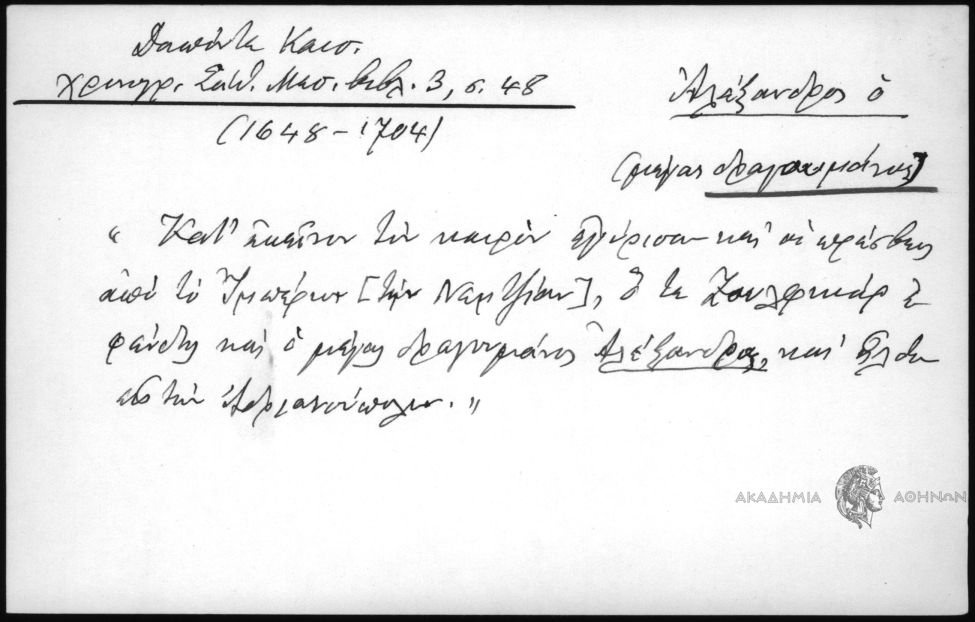 Δαπόντε Καισ.
χρονογρ. Σάθ. Μεσ. βιβλ. 3, σ. 48
(1648-1704)
Ἀλέξανδρος ὁ
(μέγας δραγουμάνος)
« Κατ' ἐκεῖνον τὸν καιρὸν ἐγύρισαν καὶ οἱ πρέσβεις
ἀπὸ τὸ Ἰμπέριον [τὴν Νεμτζίαν], ὅ τε Ζουλφικὰρ ἐ-
φέντης καὶ ὁ μέγας δραγουμάνος Ἀλέξανδρος, καὶ ἦλθαν
εἰς τὴν Ἀδριανούπολιν. »
ΑΚΑΔΗΜΙΑ ΑΘΗΝΩΝ